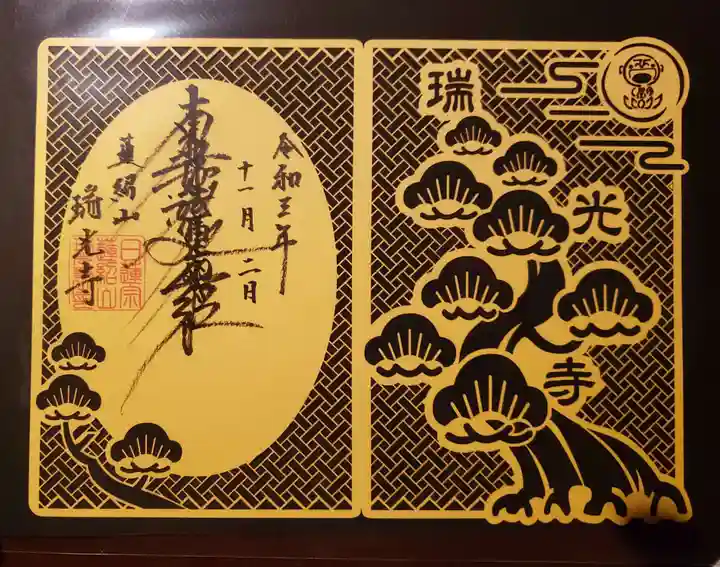 瑞光寺
令和三年
十一月二日
南無妙法蓮華経
蓮紹山
瑞光寺
日蓮宗
蓮紹山